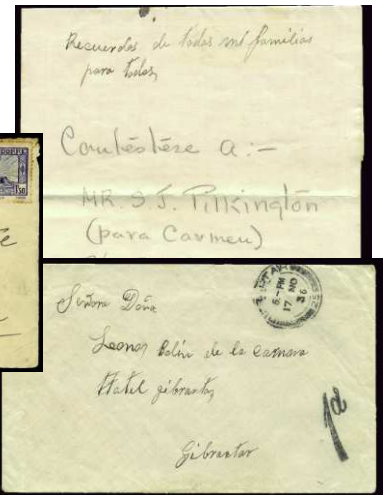 Recuerdos de todas mi familias
para todos,
Contéstese a:-
MR. S.J. Pilkington
(para Carmen)
1.50
6-PM
17 NO
36
Señora Doña
Leonor de la Camara
Hotel Gibraltar
Gibraltar